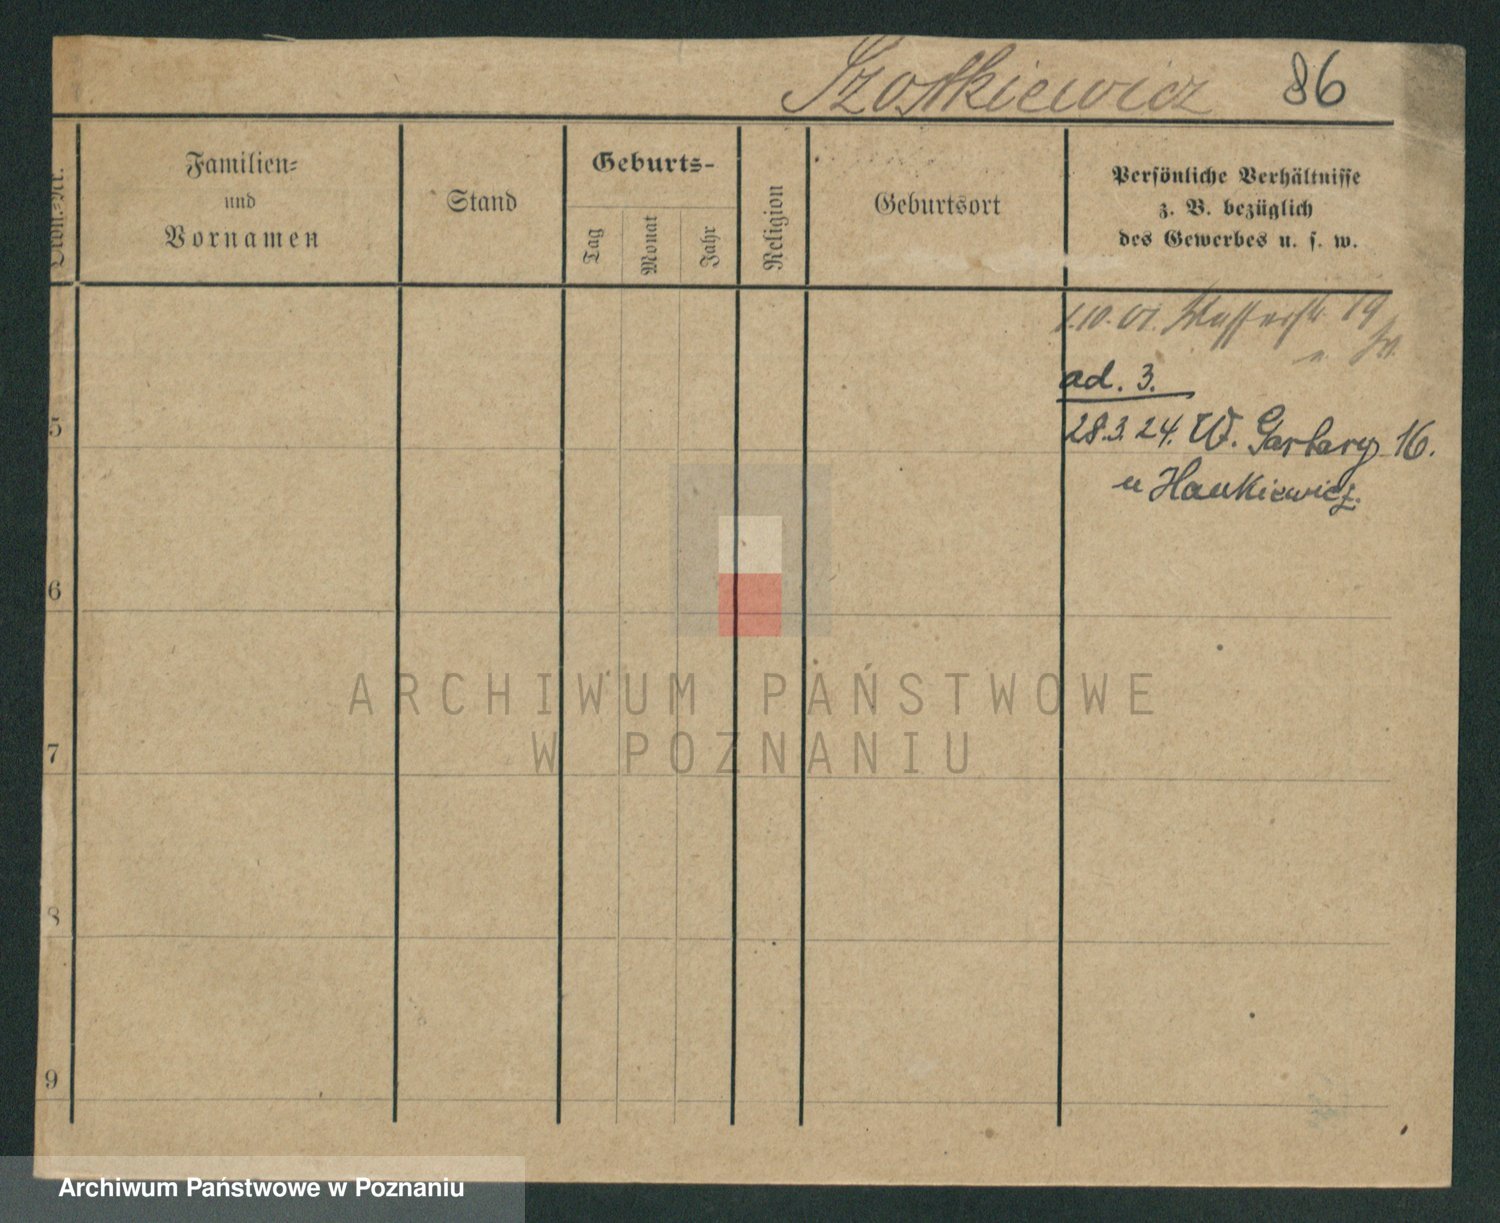 Szostkiewicz 86
Familien-
und
Vornamen
Stand
Geburts-
Tag
Monat
Jahr
Religion
Geburtsort
Persönliche Verhältnisse
z. B. bezüglich
des Gewerbes u. s. w.
1.10.01. Wasserstr. 19
ad. 3.
28.3.24. W. Garbary 16.
u Hankiewicz.
5
6
7
8
9
ARCHIWUM PAŃSTWOWE
W POZNANIU
Archiwum Państwowe w Poznaniu